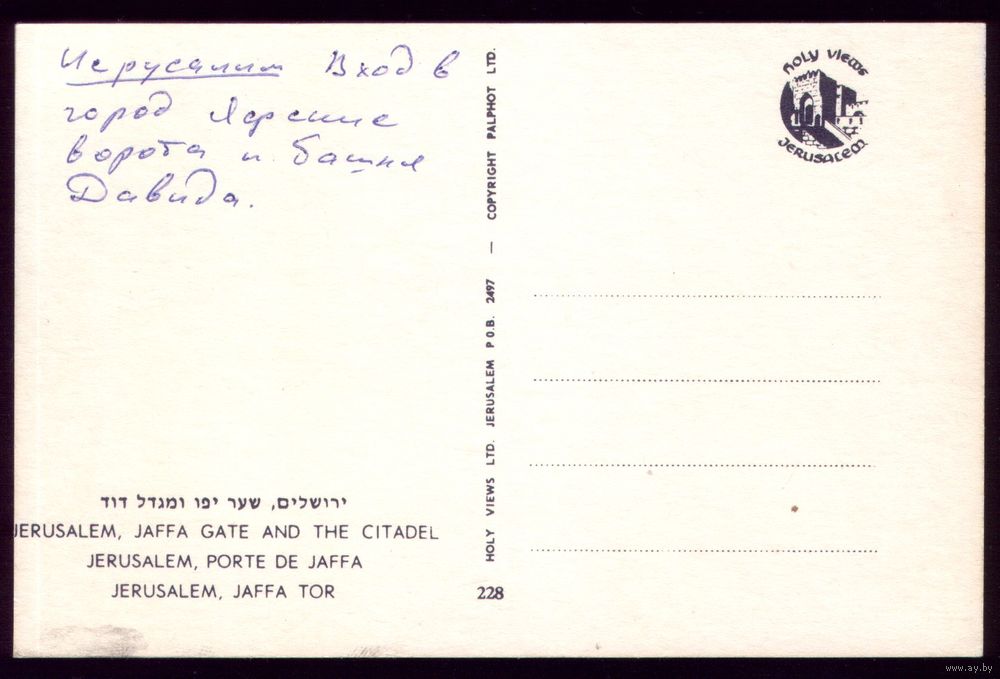 Иерусалим Вход в
город Яфские
ворота и башня
Давида.
HOLY VIEWS
JERUSALEM
ירושלים, שער יפו ומגדל דוד
JERUSALEM, JAFFA GATE AND THE CITADEL
JERUSALEM, PORTE DE JAFFA
JERUSALEM, JAFFA TOR
HOLY VIEWS LTD. JERUSALEM P.O.B. 2497 — COPYRIGHT PALPHOT LTD.
228
www.ay.by